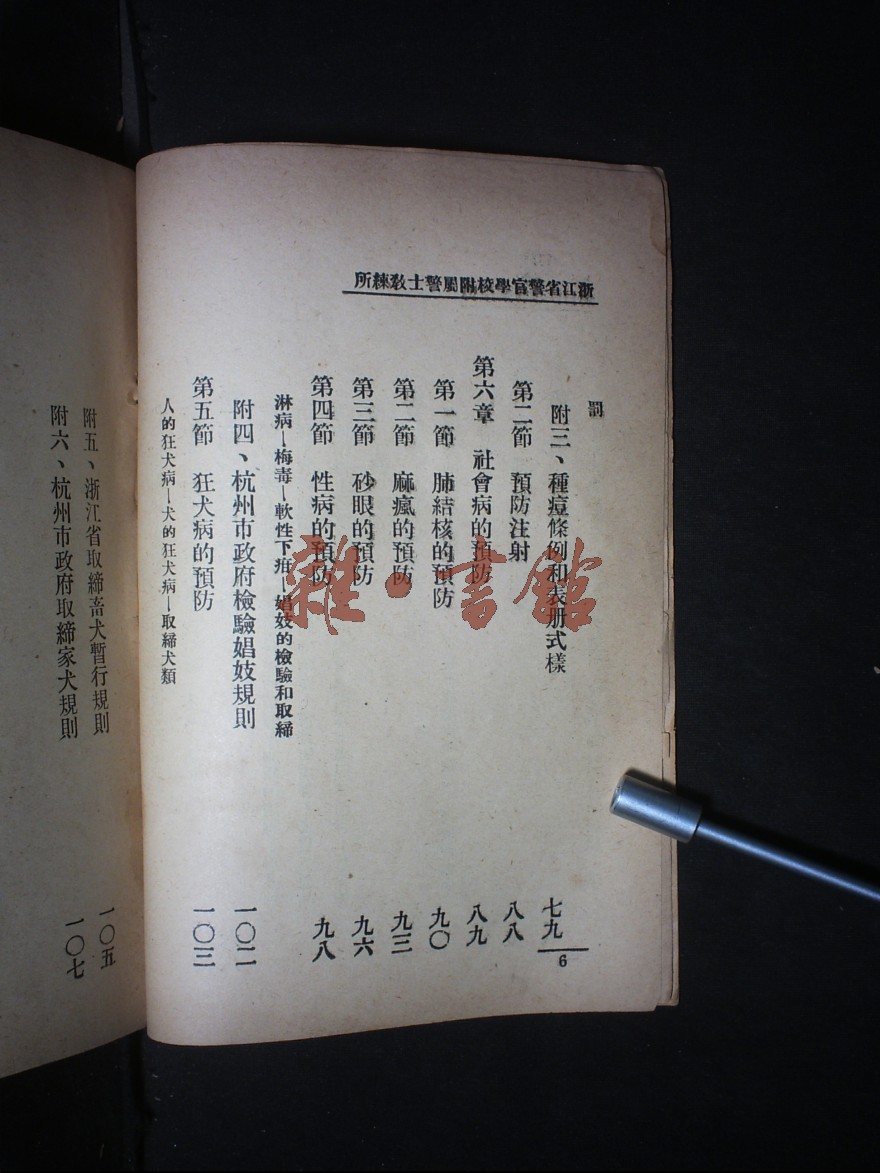 浙江省警官學校附屬警士教練所
罰
附三、種痘條例和表册式樣 七九
第二節 預防注射 八八
第六章 社會病的預防 八九
第一節 肺結核的預防 九〇
第二節 麻瘋的預防 九三
第三節 砂眼的預防 九六
第四節 性病的預防 九八
淋病—梅毒—軟性下疳—娼妓的檢驗和取締
附四、杭州市政府檢驗娼妓規則 一〇二
第五節 狂犬病的預防 一〇三
人的狂犬病—犬的狂犬病—取締犬類
附五、浙江省取締畜犬暫行規則 一〇五
附六、杭州市政府取締家犬規則 一〇七
6
雜·書館